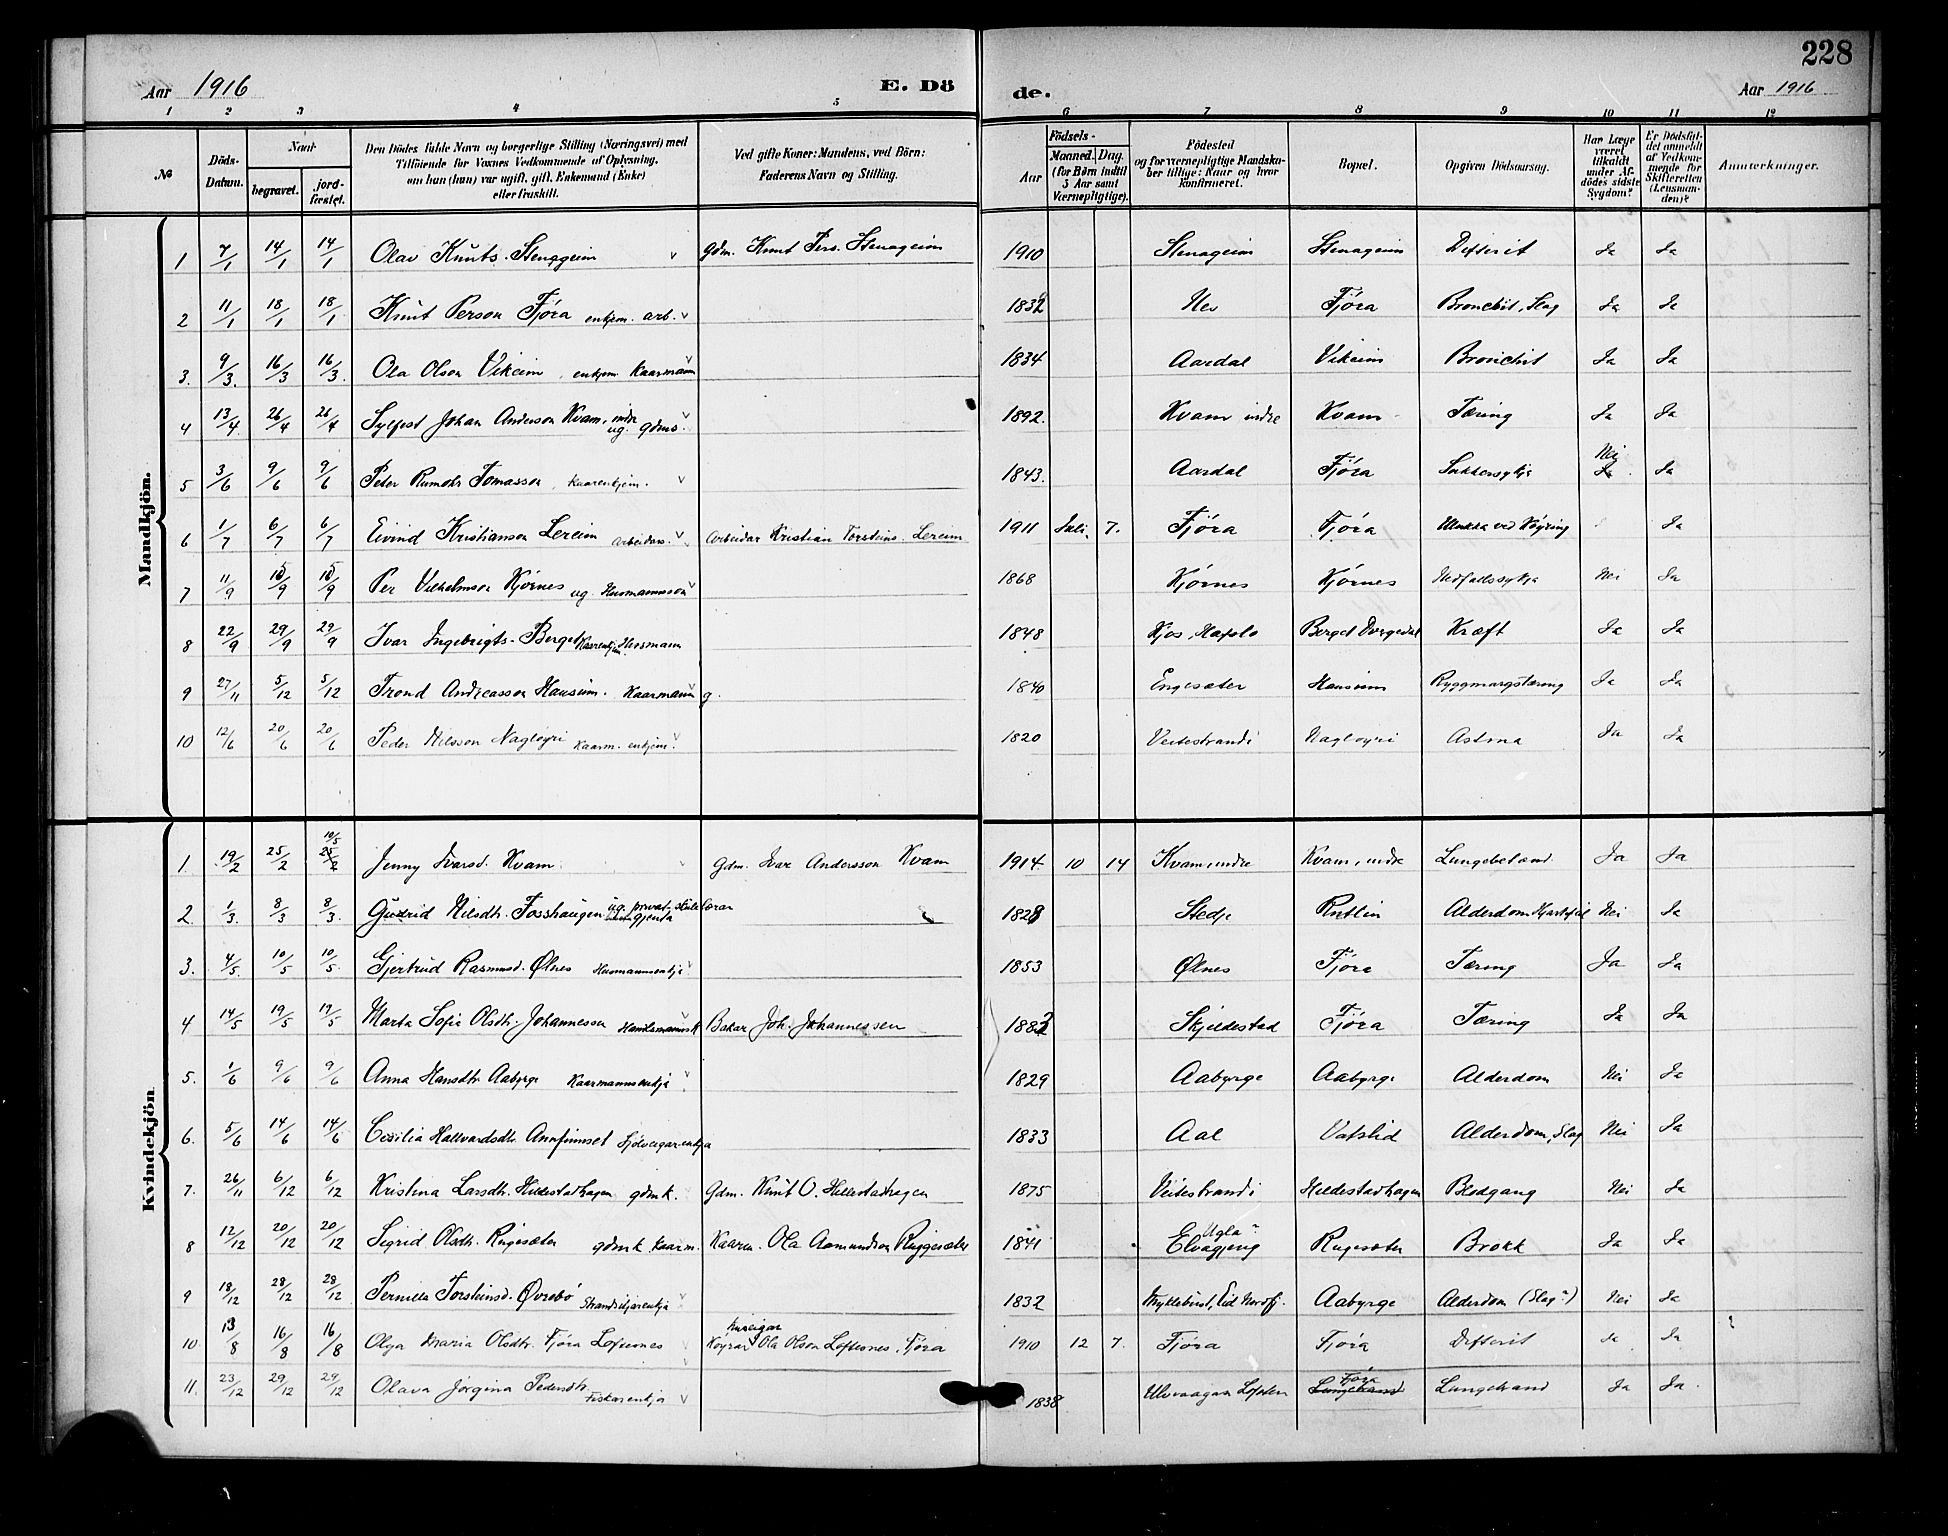 228
Aar 1916 E. Dö de. Aar 1916
1 2 3 4 5 6 7 8 9 10 11 12
№ Döds-Datum. Naar begravet. jordfæstet. Den Dödes fulde Navn og borgerlige Stilling (Næringsvei) med Tilföiende for Voxnes Vedkommende af Oplysning, om han (hun) var ugift, gift, Enkemand (Enke) eller fraskilt. Ved gifte Koner: Mandens, ved Börn: Faderens Navn og Stilling. Aar Födsels- Maaned. Dag. (for Börn indtil 5 Aar samt Værnepligtige). Födested og for værnepligtige Mandskaber tillige: Naar og hvor konfirmeret. Bopæl. Opgiven Dödsaarsag. Har Læge været tilkaldt under Afdödes sidste Sygdom? Er Dödsfaldet anmeldt af Vedkommende for Skifteretten (Lensmanden)? Anmerkninger.
Mandkjön.
1 7/1 14/1 14/1 Olav Knuts. Stenageim v gdm. Knut Pers. Stenageim 1910 Stenageim Stenageim Difterit Ja Ja
2 11/1 18/1 18/1 Knut Person Fjöra enkjem. arb. v 1832 Nes Fjöra Bronchit, Slag Ja Ja
3. 9/3. 16/3 16/3. Ola Olson Vikeim, enkjem. Kaarmann v 1834 Aardal Vikeim Bronchit Ja Ja
4 13/4 26/4 26/4 Sylfest Johan Anderson Kvam, indre ug. gdms. v 1892. Kvam indre Kvam Tæring Ja Ja
5 3/6 9/6 9/6 Peter Rumohr Tomasson, Kaarenkjem. v 1843. Aardal Fjöra Sukkersykje Nei Ja Ja
6 1/7 6/7 6/7 Eivind Kristianson Lereim arbeidars. v Arbeidar Kristian Torsteins. Lereim 1911 Juli 7. Fjöra Fjöra Ulukka ved Köyring Ja
7 11/9 15/9 15/9 Per Vilhelmson Kjörnes ug. Husmannsson v 1868 Kjörnes Kjörnes Nedfallssykja Nei Ja
8 22/9 29/9 29/9 Ivar Ingebrigts. Berget Kaarenkjem. Husmann 1848 Kjos, Hafslo Berget Kræft Ja Ja
9 27/11 5/12 5/12 Trond Andreasson Hauseim. Kaarmann g. v 1840 Engesæter Hauseim Ryggmargstæring Ja Ja
10 12/6 20/6 20/6 Peder Nilsson Nagløyri Kaarm. enkjem. v 1820 Veitestrandi Nagløyri Astma Ja Ja
Kvindekjön
1. 19/2 25/2 10/5 25/2 Jenny Ivarsd. Kvam v Gdm. Ivar Andersson Kvam 1914. 10 14 Kvam, indre Kvam, indre Lungebetænd. Ja Ja
2. 1/3. 8/3 8/3. Gudrid Nilsdtr. Fosshaugen ug. privat-skulelærar 1828 Stedje Rutlin Alderdom Hjartefeil Nei Ja
3. 4/5. 10/5 10/5. Gjertrud Rasmusd. Ølnes Husmannsenkja v 1853 Ølnes Fjöra Tæring Ja Ja
4 14/5 19/5 19/5 Marta Sofie Olsdtr. Johannessen v Bakar Joh. Johannessen 1882 Skjeldestad Fjöra Tæring Ja Ja
5. 1/6 9/6 9/6 Anna Hansdtr Aabyrge Kaarmannsenkja v 1829 Aabyrge Aabyrge Alderdom Nei Ja
6. 5/6 14/6 14/6 Cesilia Hallvardsdtr. Annfinnset Sjölveigarenkja 1833 Aal Vatslid Alderdom, Slag Nei Ja
7. 26/11 6/12 6/12 Kristina Larsdtr. Hillestadhagen gdmk. Gdm. Knut O. Hillestadhagen 1875 Veitestrandi Hillestadhagen Blodgang Nei Ja
8 12/12 20/12 20/12 Sigrid Olsdtr. Rugesæter gdmk. kaarm. Kaarm. Ola Aamundson Ruggesæter 1841 Ugla? Elvagjeng Rugesæter Brokk Ja Ja
9 18/12 28/12 28/12 Pernilla Torsteinsd. Øvrebö Strandsitjarenkja 1832 Myklebust, Eid Nordfj. Aabyrge Alderdom (Slag?) Nei Ja
10 13/8 16/8 16/8 Olga Maria Olsdtr. Fjöra Loftesnes v Huseigar Köyrar Ola Olson Loftesnes, Fjöra 1910 12 7. Fjöra Fjöra Difterit Ja Ja
11. 23/12 29/12 29/12 Olava Jörgina Pedersdtr. Fiskarenkja v 1838 Ulvvaagen Lofoten Fjöra Ja Ja.